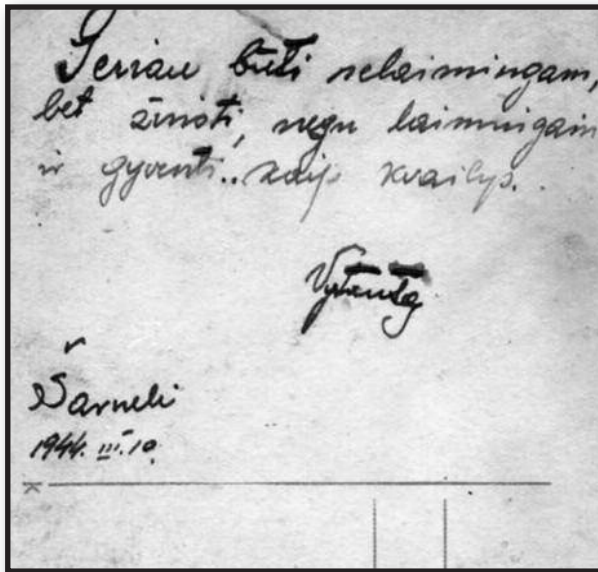 Geriau būti nelaimingam,
bet žinoti, negu laimingam
ir gyventi.. kaip kvailys.
Vytautas
Šarneli
1944. III. 10.